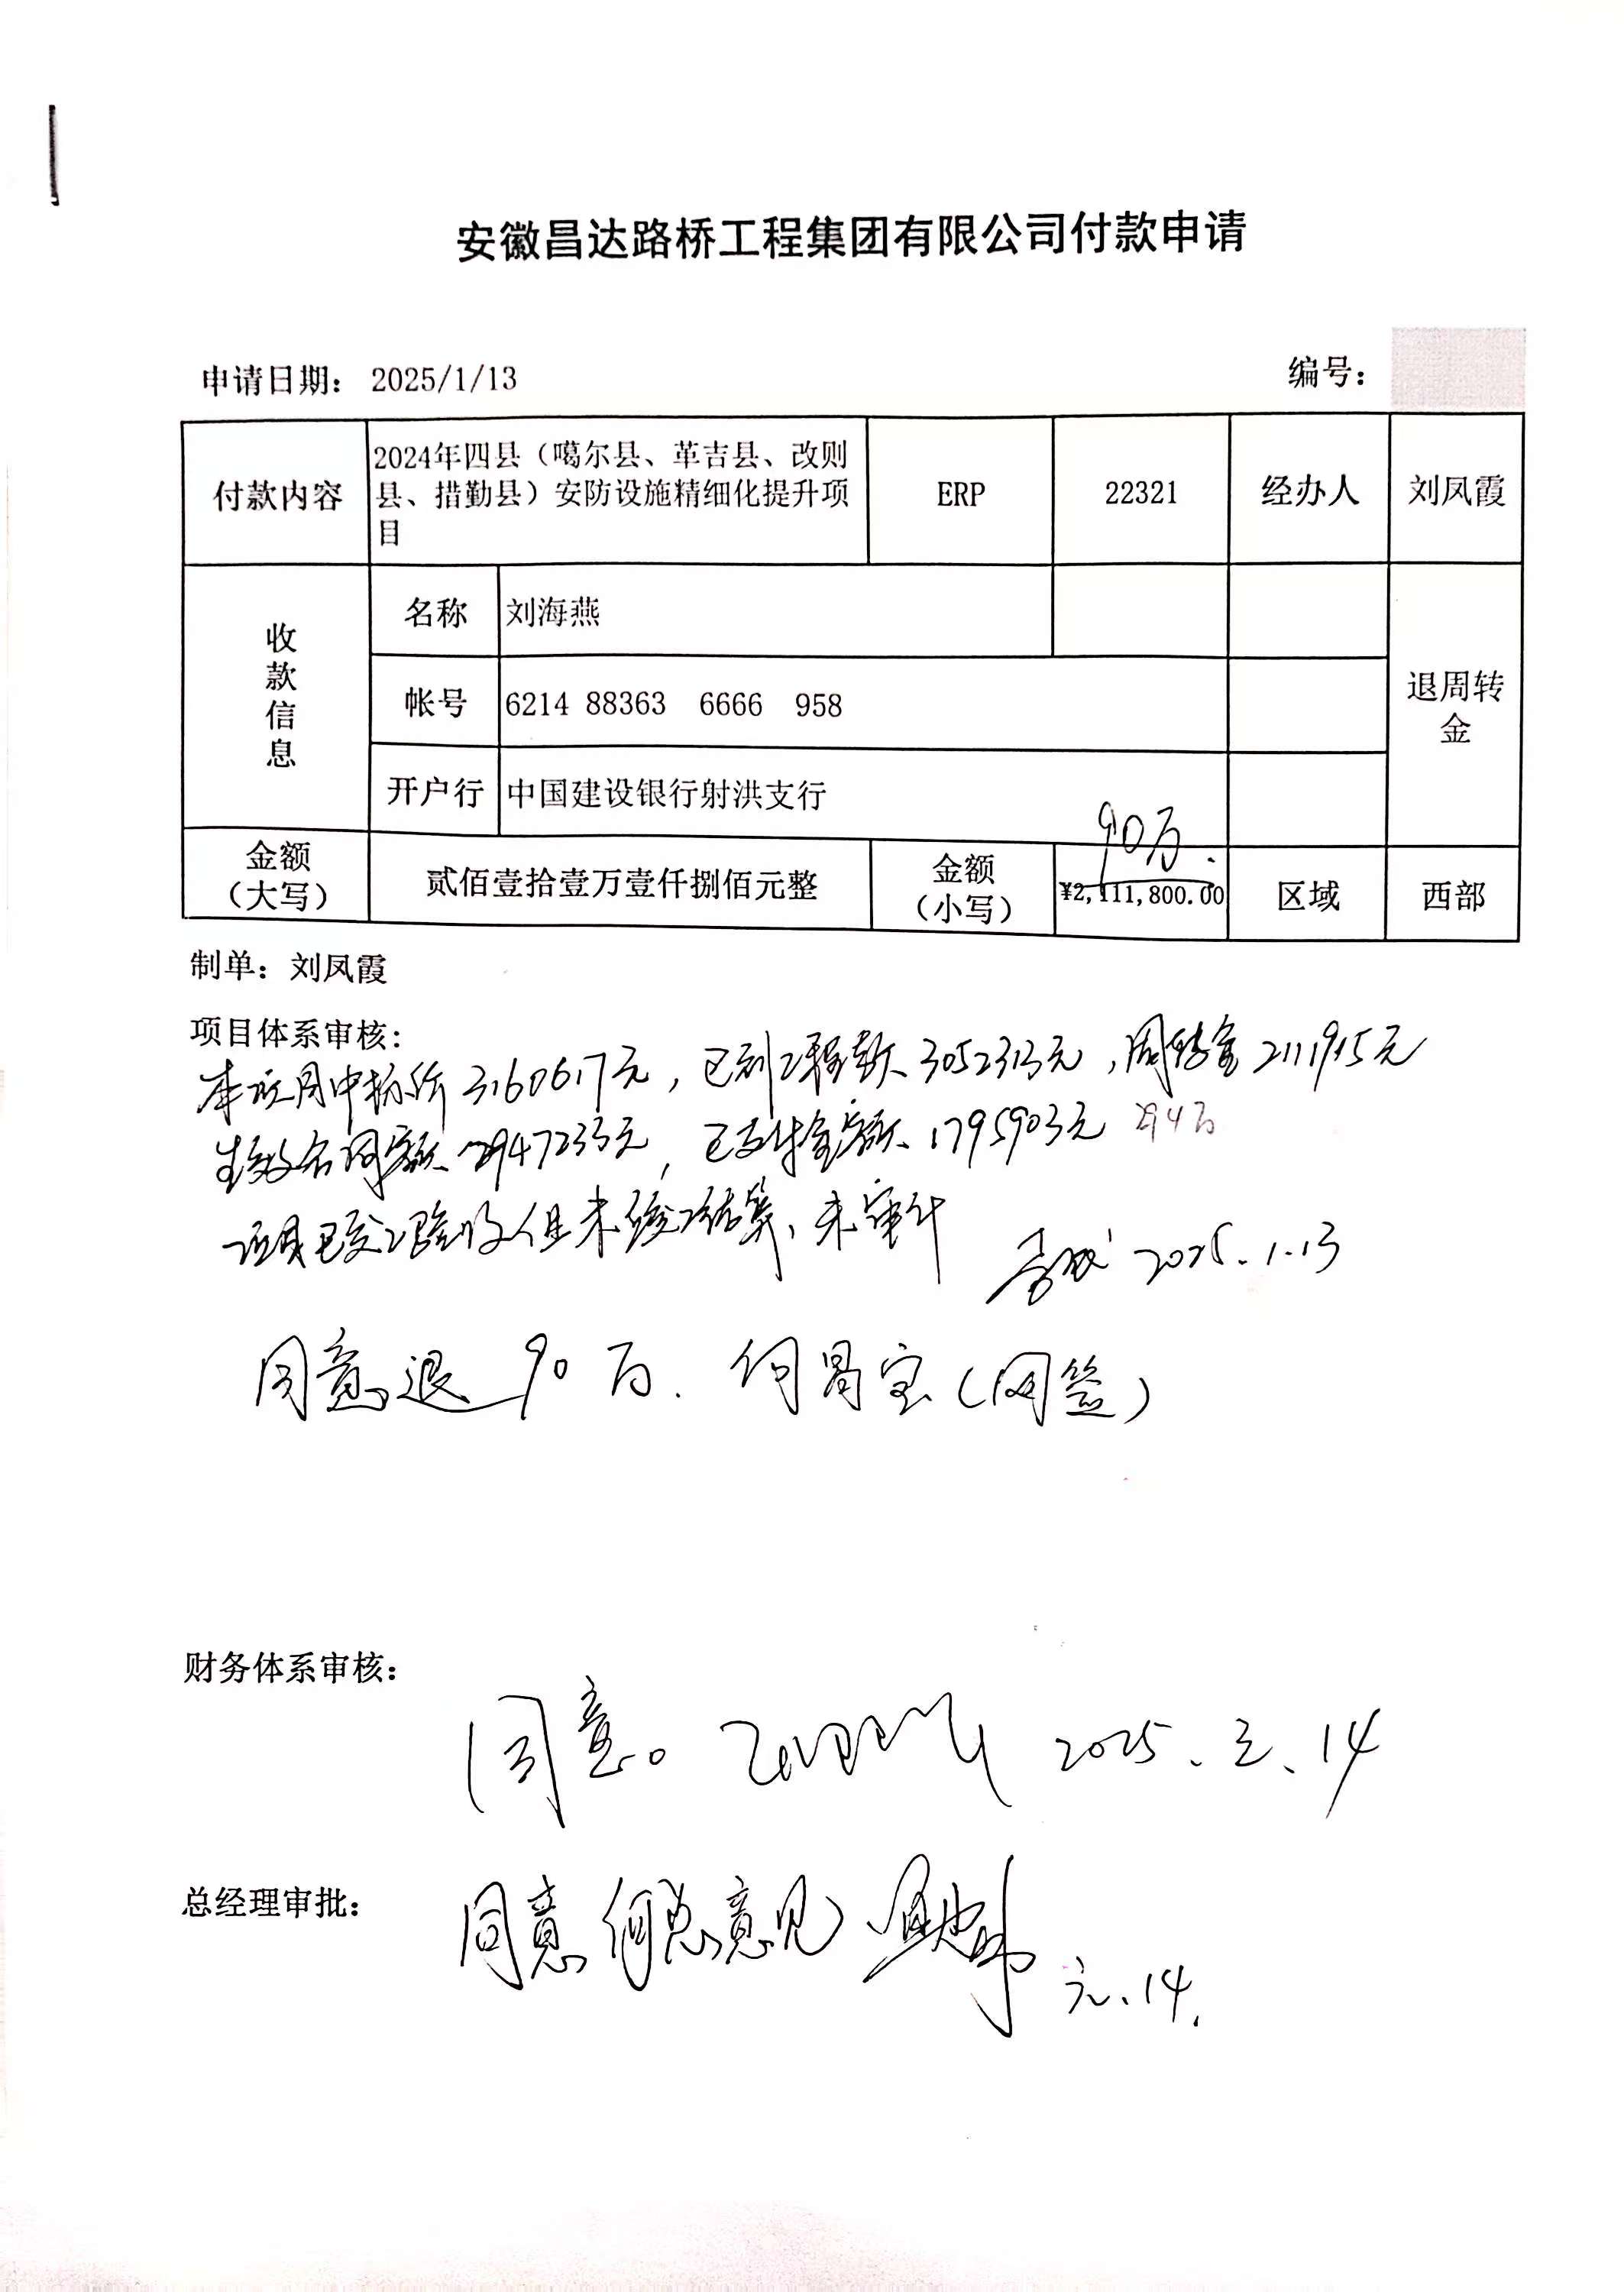 安徽昌达路桥工程集团有限公司付款申请
申请日期： 2025/1/13 编号：
付款内容 2024年四县（噶尔县、革吉县、改则县、措勤县）安防设施精细化提升项目 ERP 22321 经办人 刘凤霞
收款信息 名称 刘海燕 退周转金
帐号 6214 88363 6666 958
开户行 中国建设银行射洪支行
90万.
金额（大写） 贰佰壹拾壹万壹仟捌佰元整 金额（小写） ¥2,111,800.00 区域 西部
制单：刘凤霞
项目体系审核：
本项目中标价3160617元，已到工程款3052313元，周转金2111915元
生效合同额2947233元，已支付金额1795903元 294万
项目已交工验收但未竣工结算、未审计
2025.1.13
同意退90万. 何昌宝（网签）
财务体系审核：
同意。 2025.元.14
总经理审批：
同意何总意见
元.14.